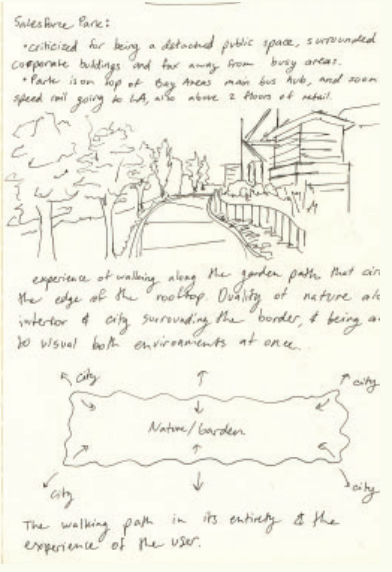 Salesforce Park:
•criticized for being a detached public space, surrounded
corporate buldings and far away from busy areas.
•Park is on top of Bay Areas main bus hub, and soon
speed rail going to LA, also above 2 floors of retail.
experience of walking along the garden path that
the edge of the rooftop. Duality of nature
interior & city surrounding the border, & being
to visual both environments at once.
city
city
Nature/Garden
city
city
The walking path in its entirety & the
experience of the user.